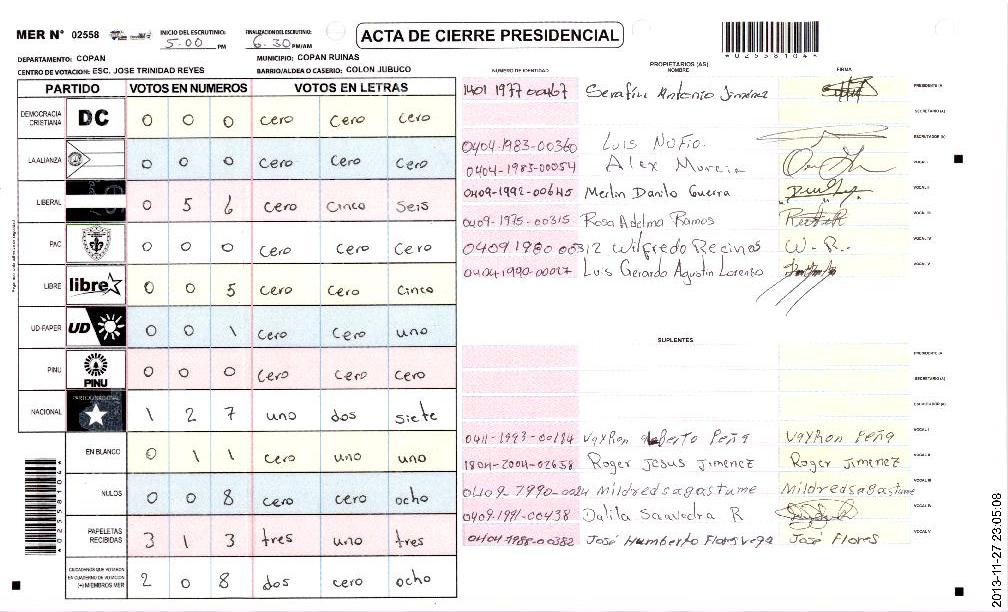 MER N° 02558
INICIO DEL ESCRUTINIO: 5:00 PM
FINALIZACION DEL ESCRUTINIO: 6:30 PM/AM
ACTA DE CIERRE PRESIDENCIAL
*02558104*
DEPARTAMENTO: COPAN
MUNICIPIO: COPAN RUINAS
CENTRO DE VOTACION: ESC. JOSE TRINIDAD REYES
BARRIO/ALDEA O CASERIO: COLON JUBUCO
PARTIDO VOTOS EN NUMEROS VOTOS EN LETRAS
DEMOCRACIA CRISTIANA DC 0 0 0 cero cero cero
LA ALIANZA 0 0 0 cero cero cero
LIBERAL 0 5 6 cero cinco seis
PAC 0 0 0 cero cero cero
LIBRE libre 0 0 5 cero cero cinco
UD-FAPER UD 0 0 1 cero cero uno
PINU PINU 0 0 0 cero cero cero
NACIONAL 1 2 7 uno dos siete
EN BLANCO 0 1 1 cero uno uno
NULOS 0 0 8 cero cero ocho
PAPELETAS RECIBIDAS 3 1 3 tres uno tres
CIUDADANOS QUE VOTARON EN CUADERNO DE VOTACION (+) MIEMBROS MER 2 0 8 dos cero ocho
*02558104*
PROPIETARIOS (AS)
NUMERO DE IDENTIDAD NOMBRE FIRMA
1401 1977 00467 Serafin Antonio Jiménez PRESIDENTE (A)
SECRETARIO (A)
0404-1983-00360 Luis Nufio. ESCRUTADOR (A)
0404-1983-00054 Alex Murcia VOCAL I
0409-1992-00645 Merlin Danilo Guerra VOCAL II
0409-1975-00315 Rosa Adelma Ramos VOCAL III
0409 1980 00312 Wilfredo Recinos W. R.. VOCAL IV
0404-1990-00017 Luis Gerardo Agustin Lorenzo VOCAL V
SUPLENTES
PRESIDENTE (A)
SECRETARIO (A)
ESCRUTADOR (A)
0411-1993-00184 Vayron Peña Vayron Peña VOCAL I
1804-2004-02658 Roger Jesus Jimenez Roger Jimenez VOCAL II
0409 7990-0024 Mildredsagastume Mildredsagastume VOCAL III
0409-1991-00438 Dalila Saavedra R VOCAL IV
0404 1988-00382 José Humberto Flores vega José Flores VOCAL V
2013-11-27 23:05:08